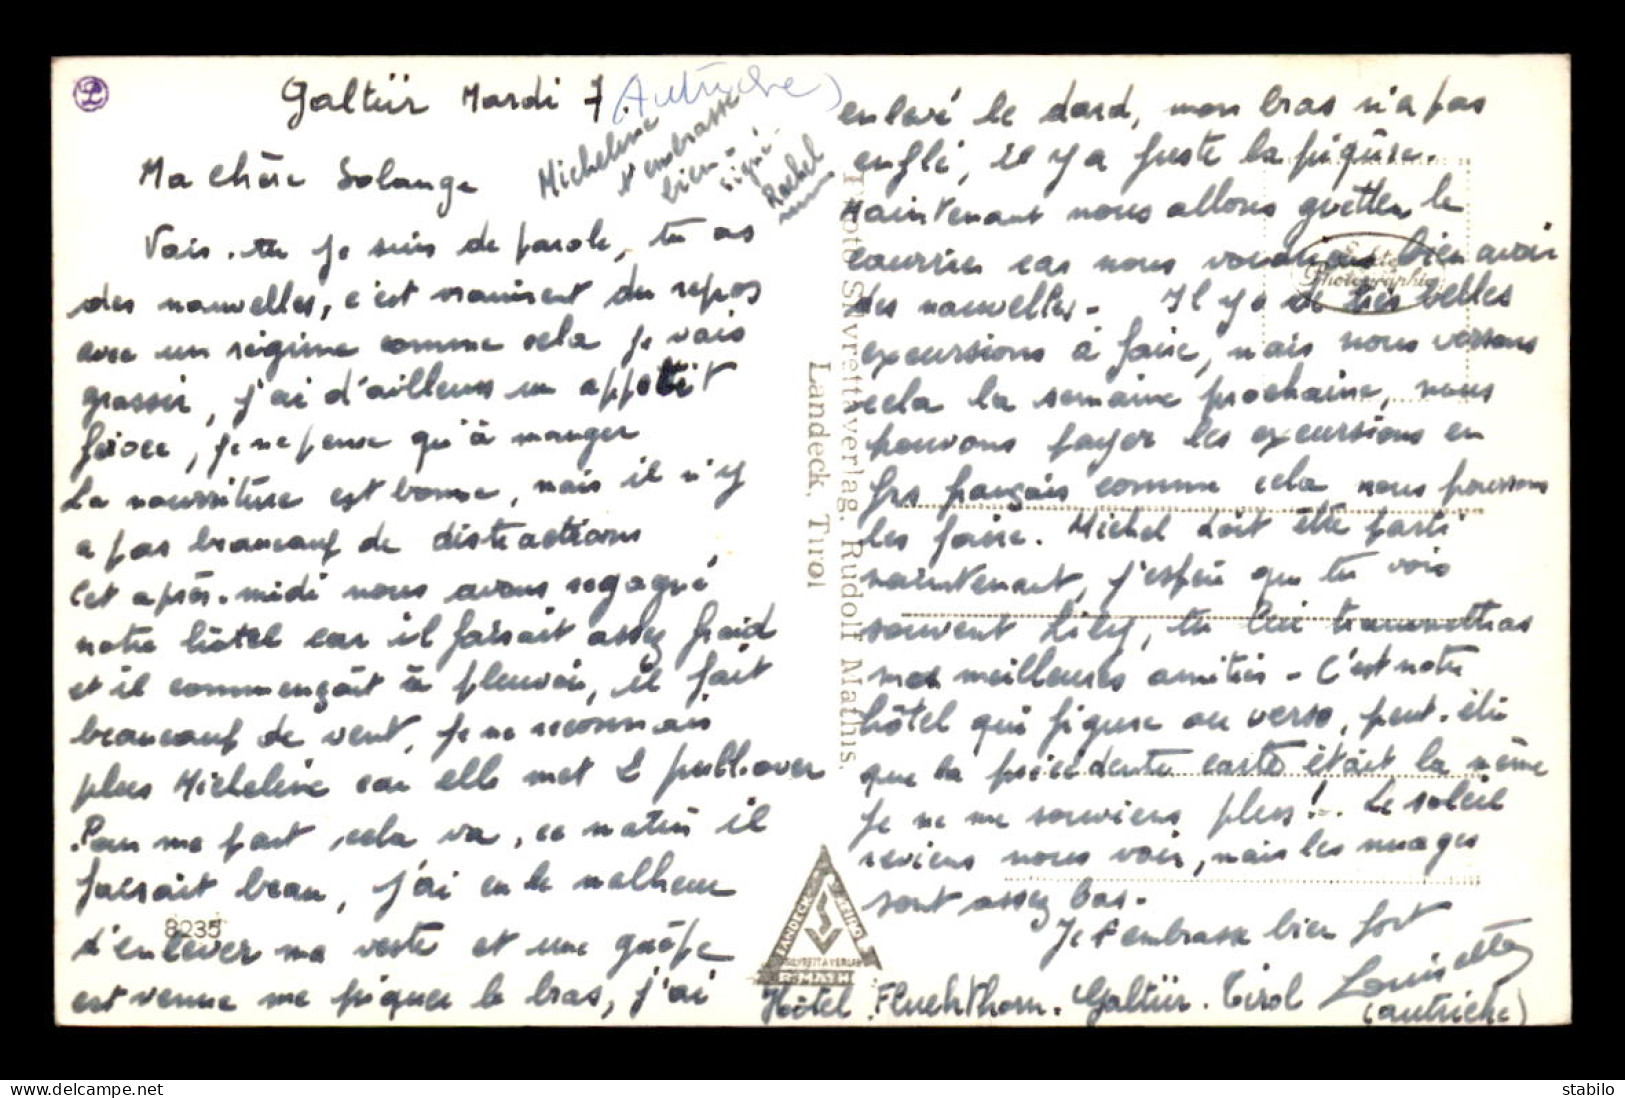 Galtür Mardi 7. (Autriche)
Micheline
t'embrasse
bien
signé
Rachel
Ma chère Solange
Vois-tu je suis de parole, tu as
des nouvelles, c'est vraiment du repos
avec un régime comme cela je vais
grossir, j'ai d'ailleurs un appetit
féroce, je ne pense qu'à manger
La nourriture est bonne, mais il n'y
a pas beaucoup de distractions
Cet après-midi nous avons regagné
notre hôtel car il faisait assez froid
et il commençait à pleuvoir, il fait
beaucoup de vent, je ne reconnais
plus Micheline car elle met 2 pull-over
Pour me part cela va, ce matin il
faisait beau, j'ai eu le malheur
d'enlever ma veste et une guêpe
est venue me piquer le bras, j'ai
enlevé le dard, mon bras n'a pas
enflé, il y a juste la piqûre.
Maintenant nous allons guetter le
courrier car nous voudrions bien avoir
des nouvelles - Il y a de très belles
excursions à faire, mais nous verrons
cela la semaine prochaine, nous
pouvons payer les excursions en
frs français comme cela nous pourrons
les faire. Michel doit être parti
maintenant, j'espère que tu vois
souvent Lily, tu lui transmettras
mes meilleures amitiés - C'est notre
hôtel qui figure au verso, peut-être
que la précédente carte était la même
je ne me souviens plus! - Le soleil
reviens nous voir, mais les nuages
sont assez bas.
Je t'embrasse bien fort
Louisette
Hôtel Fluchthorn. Galtür. Tirol
(Autriche)
Photo Silvrettaverlag, Rudolf Mathis,
Landeck, Tirol
Echte
Photographie
8235
LANDECK
TIROL
SILVRETTAVERLAG
R. MATH
stabilo